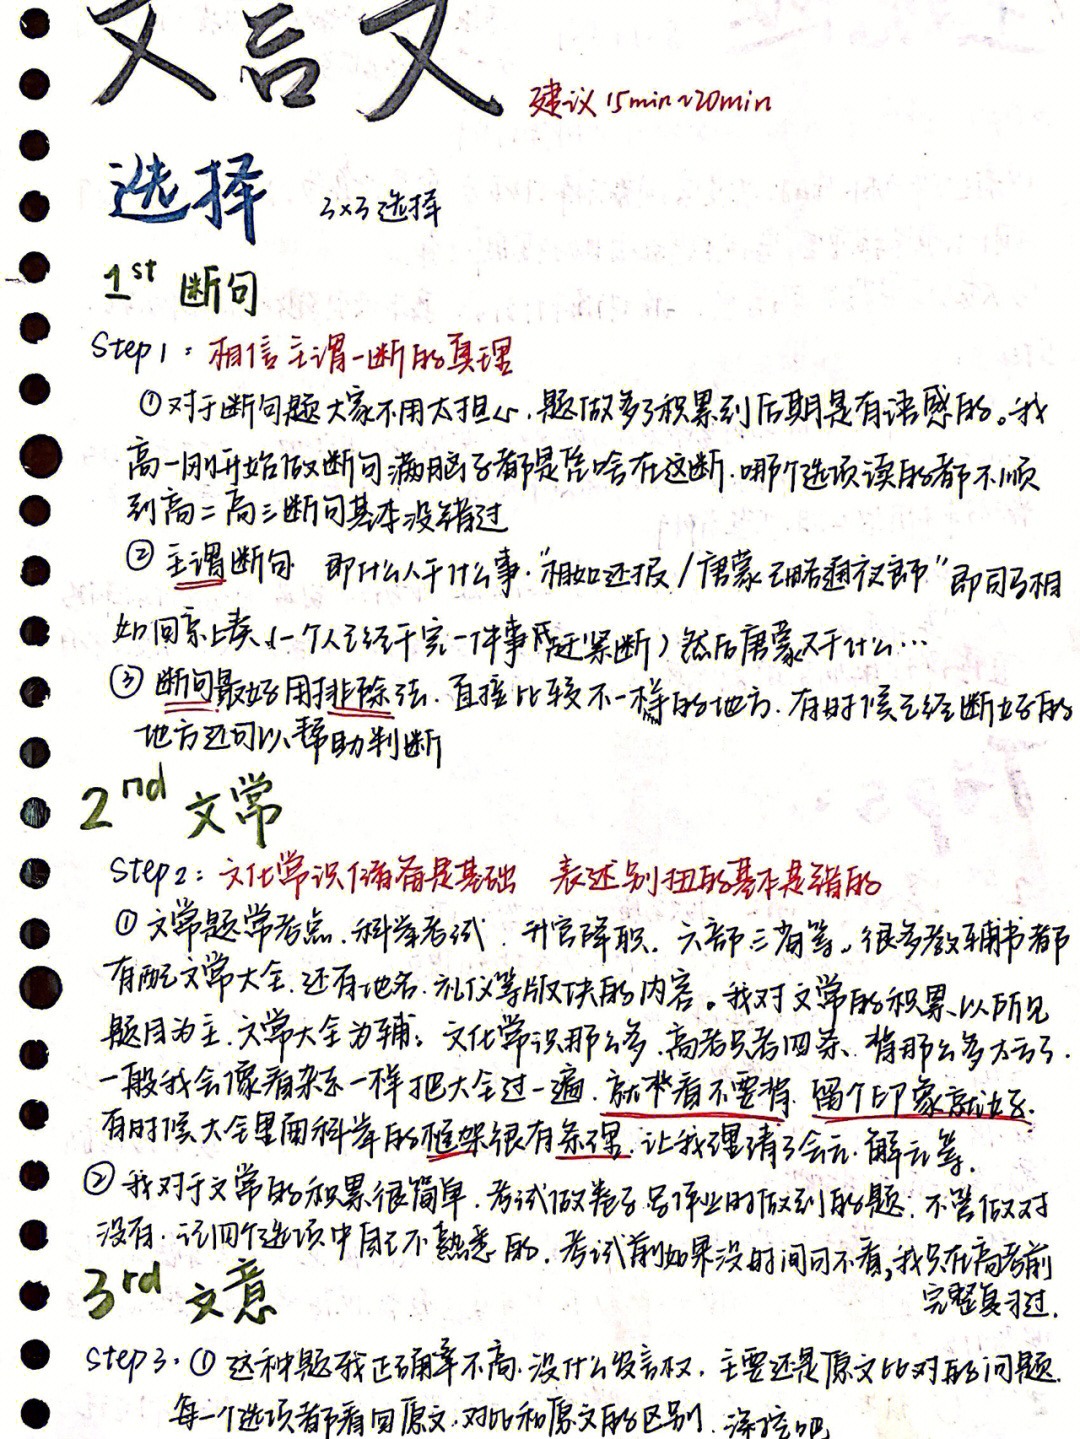 文言文
建议 15min~20min
选择 3×3选择
1st 断句
Step1：相信主谓一断的真理
①对于断句题大家不用太担心，题做多了积累到后期是有语感的。我
高一刚开始做断句满脑子都是凭啥在这断，哪个选项读的都不顺
到高二高三断句基本没错过
②主谓断句 即什么人干什么事，“相如还报/唐蒙已略通夜郎”即司马相
如回京上奏（一个人已经干完一件事赶紧断）然后唐蒙又干什么…
③断句最好用排除法，直接比较不一样的地方，有时候已经断好的
地方还可以帮助判断
2nd 文常
Step2：文化常识储备是基础 表述别扭的基本是错的
①文常题常考点，科举考试，升官降职，六部三省等。很多教辅书都
有配文常大全，还有地名，礼仪等版块的内容。我对文常的积累以所见
题目为主，文常大全为辅；文化常识那么多，高考只考四条，背那么多太亏了，
一般我会像看杂志一样把大全过一遍，就看不要背，留个印象就好，
有时候大全里面科举的框架很有条理，让我理清了会元，解元等，
②我对于文常的积累很简单，考试做卷子写作业时做到的题，不管做对
没有，记四个选项中自己不熟悉的，考试前如果没时间可不看，我只在高考前
完整复习过。
3rd 文意
Step3：①这种题我正确率不高，没什么发言权，主要还是原文比对的问题，
每一个选项都看回原文，对比和原文的区别，